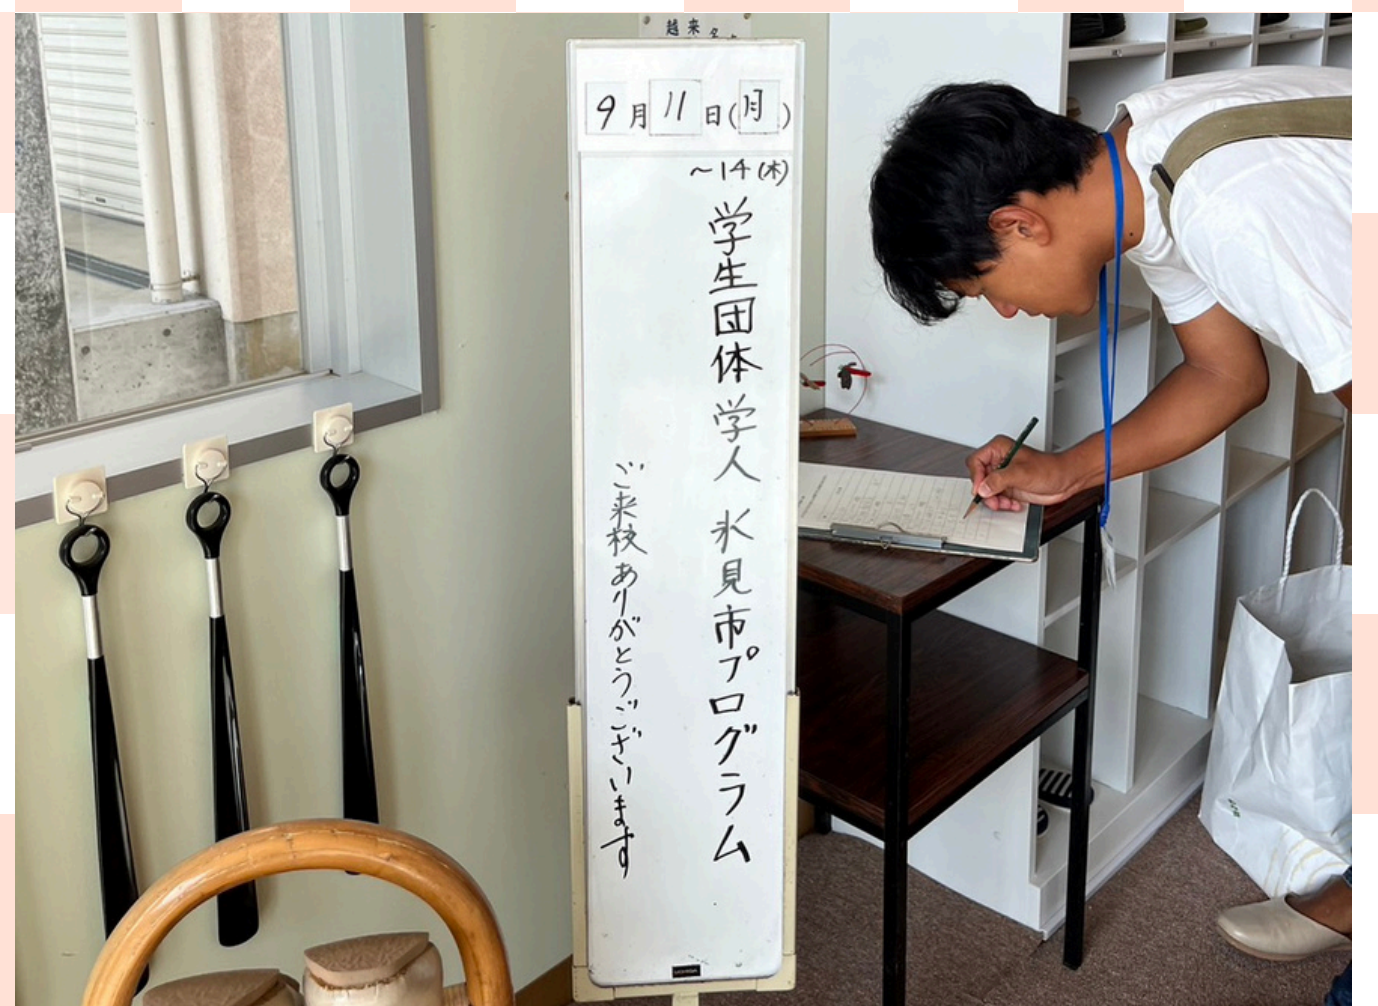 越来
9月11日(月)
～14(木)
学生団体学人 氷見市プログラム
ご来校ありがとうございます
UCHIDA